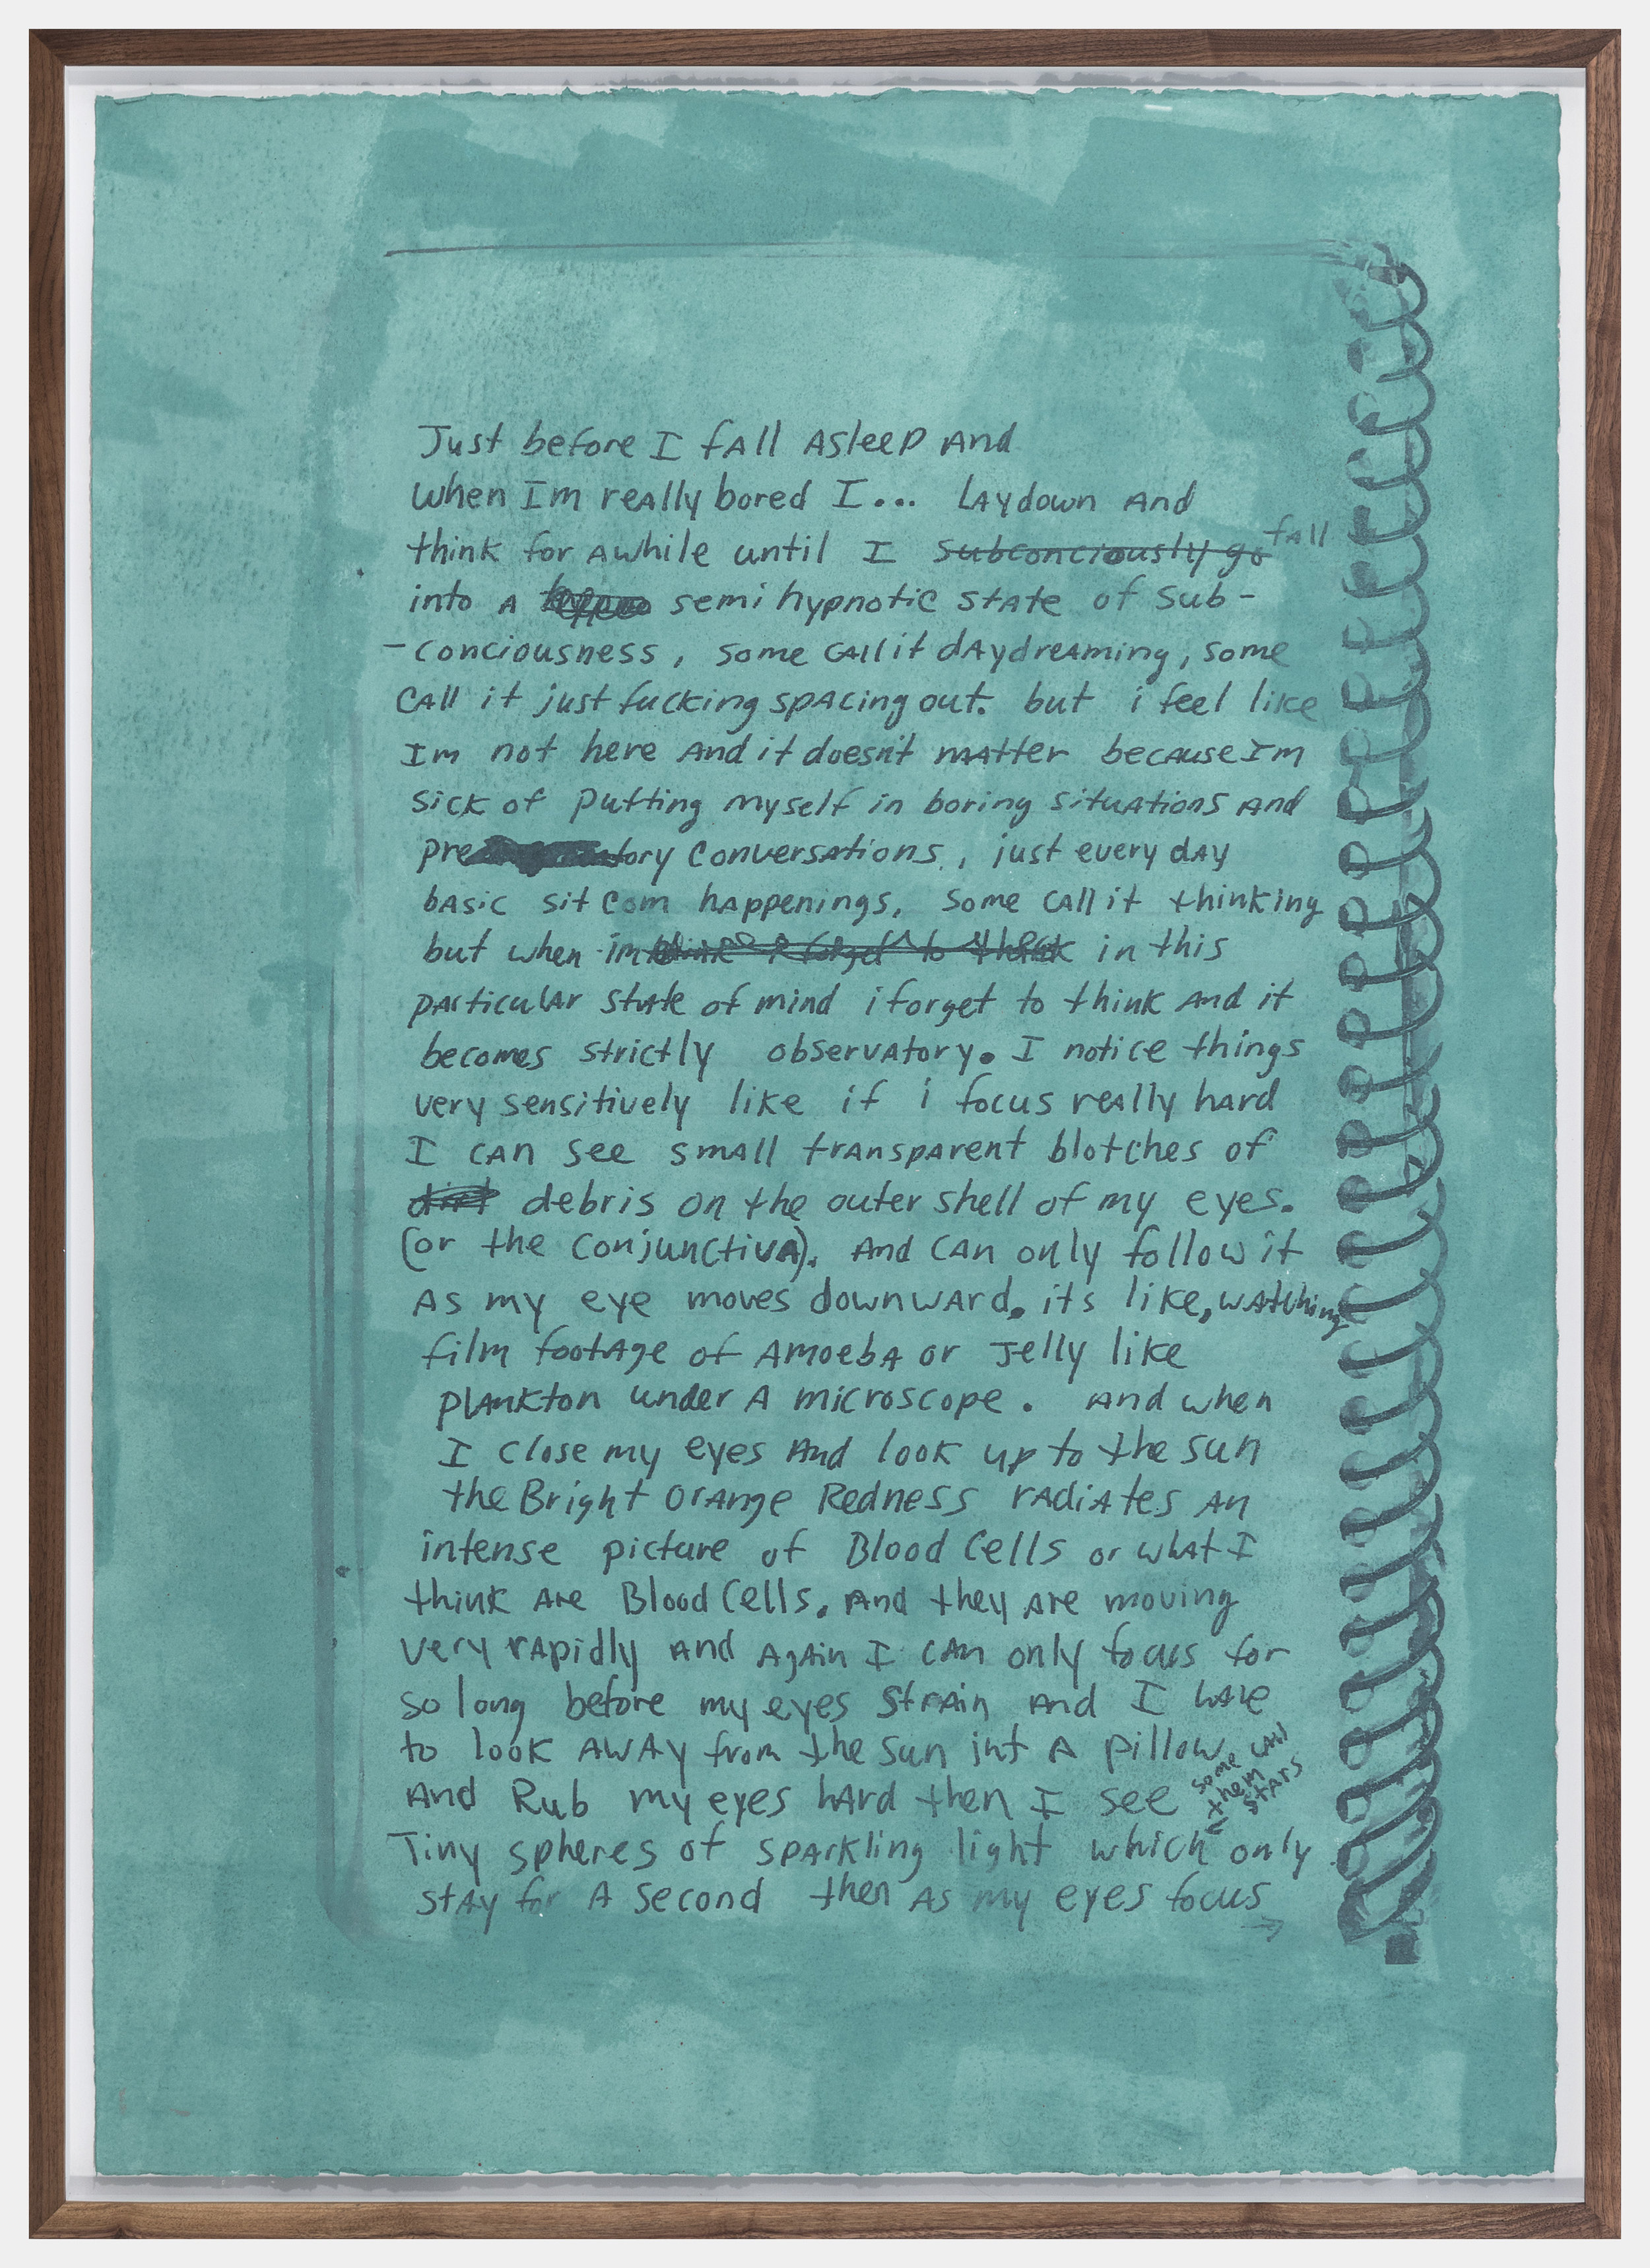 Just before I fall Asleep And
when Im really bored I... Laydown And
think for Awhile until I subconciously go fall
into A semi hypnotic state of sub-
-conciousness, some call it daydreaming, some
call it just fucking spacing out. but i feel like
Im not here And it doesn't matter because Im
sick of putting myself in boring situations And
pre tory conversations, just every day
basic sit com happenings, some call it thinking
but when im blink & forget to think in this
particular state of mind i forget to think and it
becomes strictly observatory. I notice things
very sensitively like if i focus really hard
I can see small transparent blotches of
dirt debris on the outer shell of my eyes.
(or the conjunctiva). And can only follow it
As my eye moves downward. its like, watching
film footage of Amoeba or Jelly like
plankton under A microscope. And when
I close my eyes And look up to the sun
the Bright orange Redness radiates an
intense picture of Blood Cells or what I
think are Blood Cells. And they are moving
very rapidly and again I can only focus for
so long before my eyes strain and I have
to look AwAy from the sun int A pillow
And Rub my eyes hard then I see some call them stars
Tiny spheres of sparkling light which only
stay for A second then As my eyes focus
→